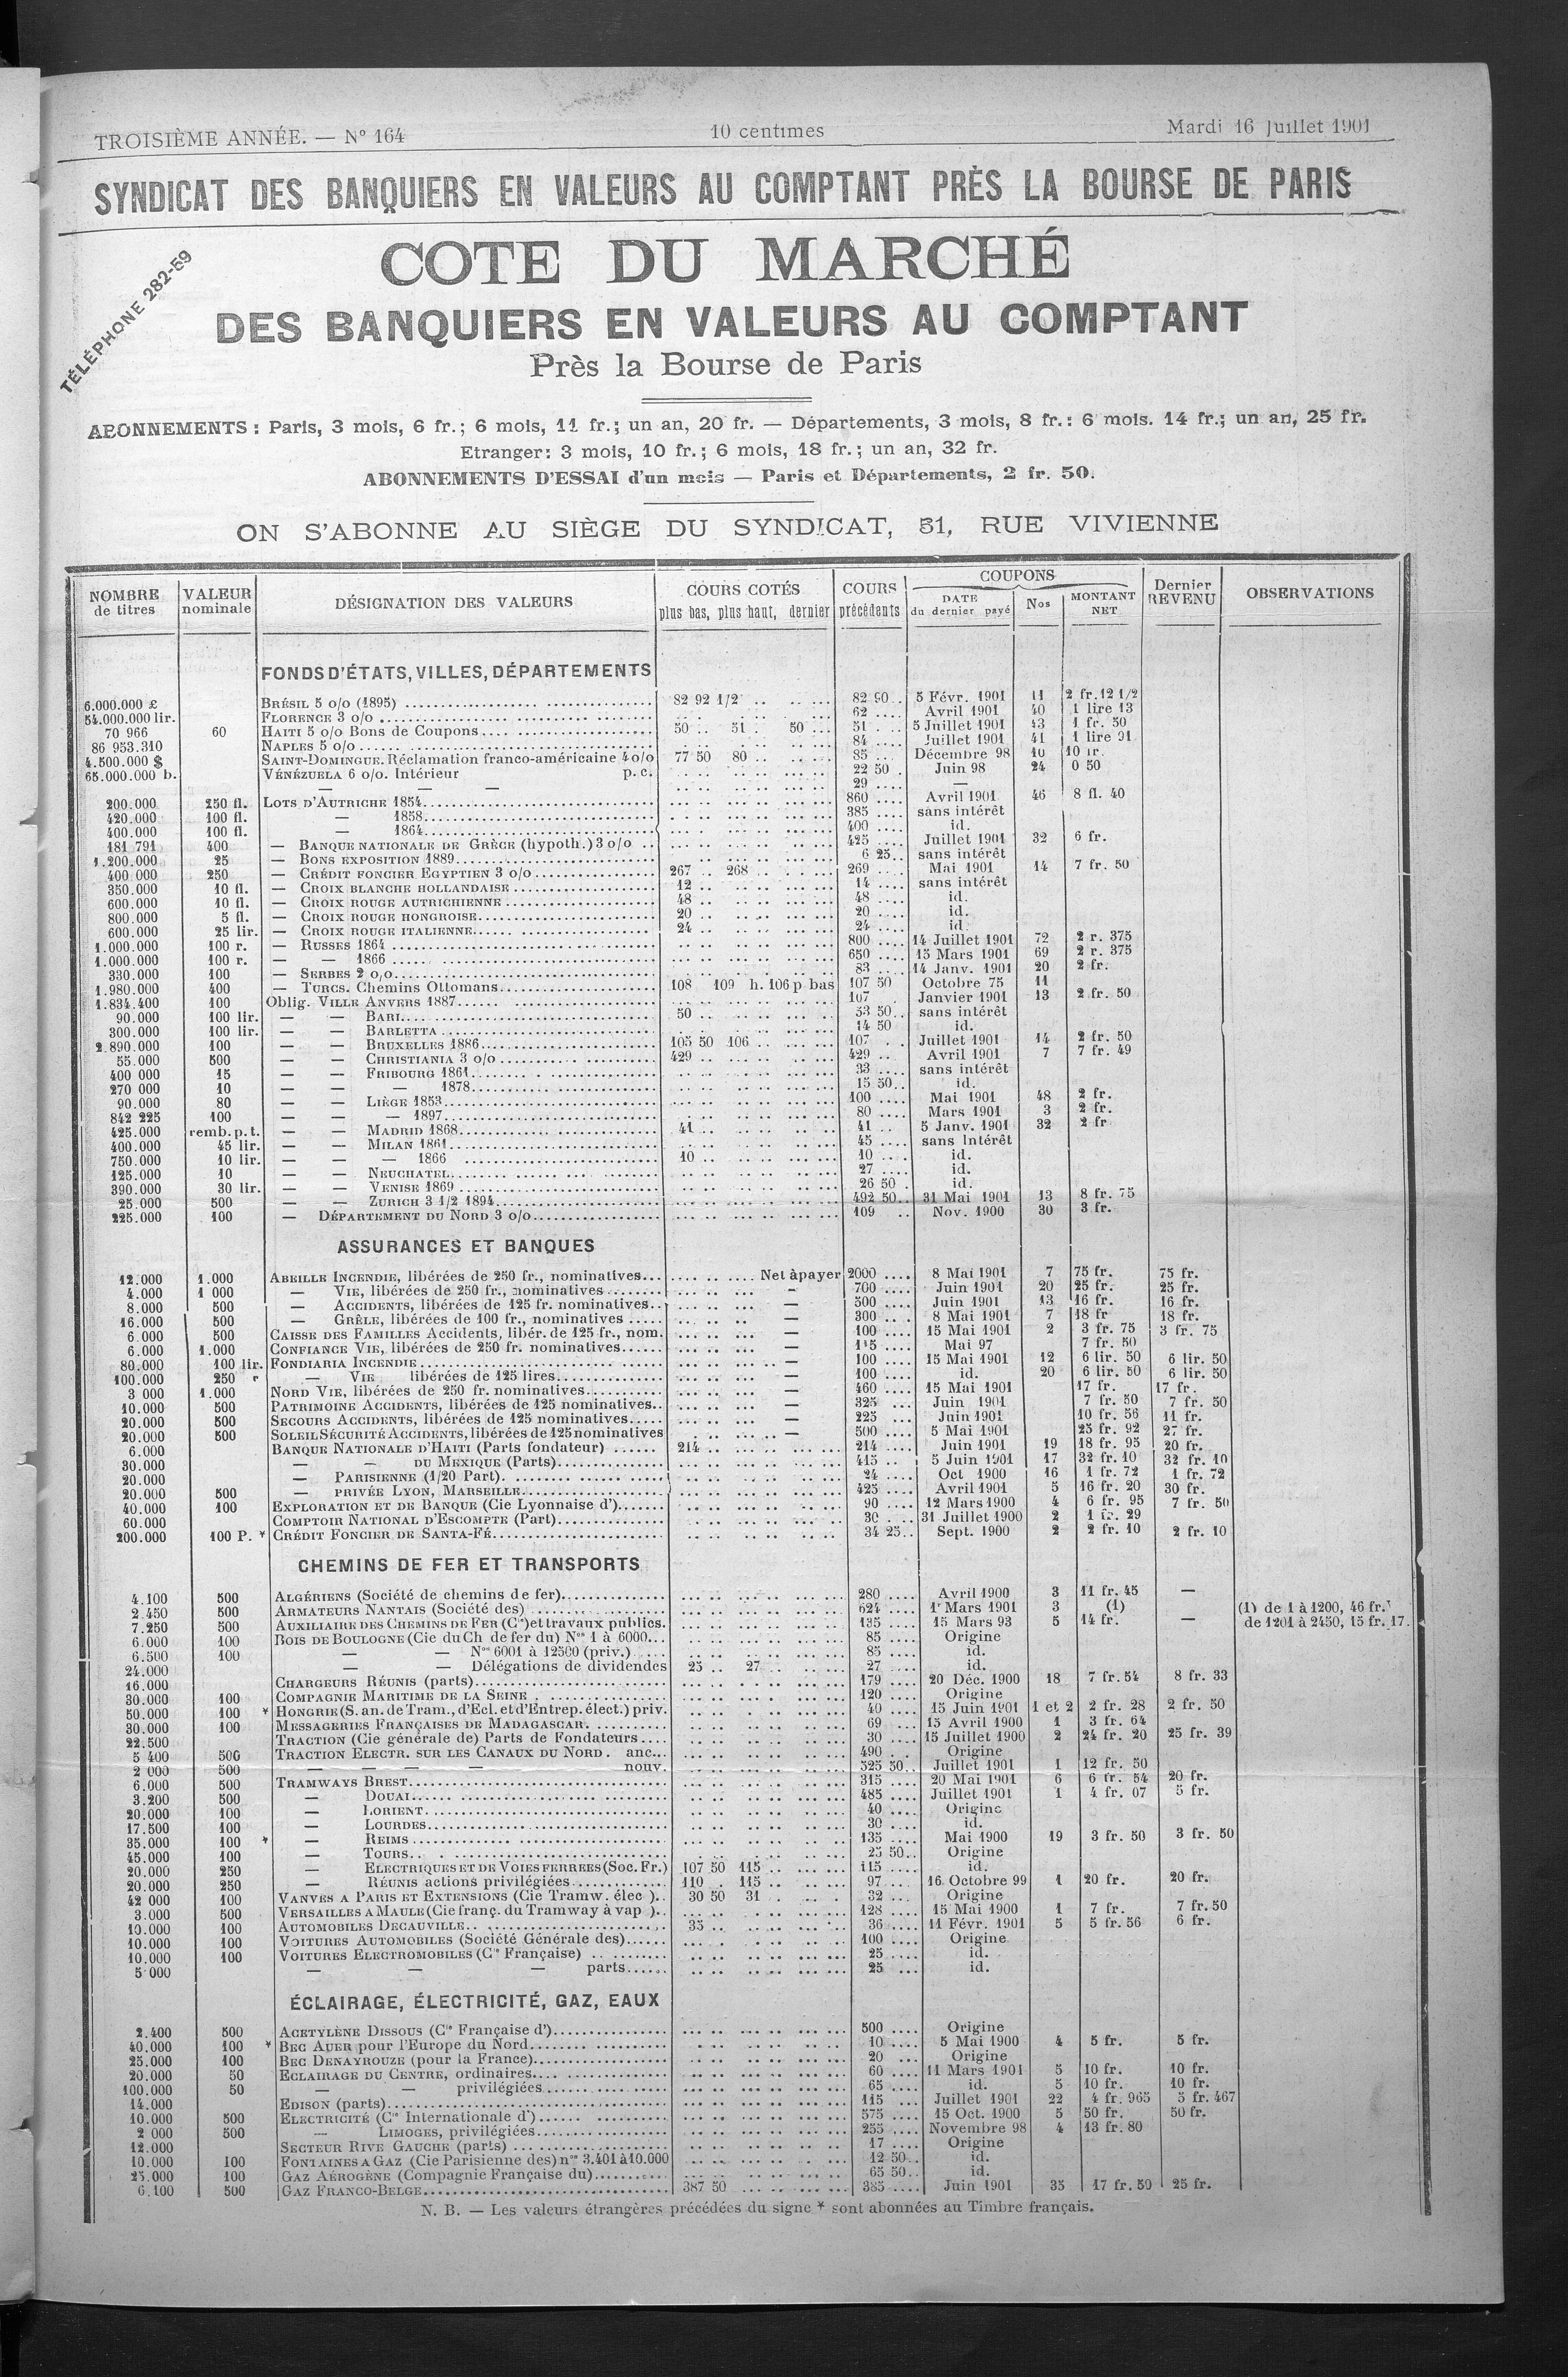 TROISIÈME ANNÉE. — N° 164 10 centimes Mardi 16 Juillet 1901
SYNDICAT DES BANQUIERS EN VALEURS AU COMPTANT PRÈS LA BOURSE DE PARIS
TÉLÉPHONE 282-59
COTE DU MARCHÉ
DES BANQUIERS EN VALEURS AU COMPTANT
Près la Bourse de Paris
ABONNEMENTS : Paris, 3 mois, 6 fr.; 6 mois, 11 fr.; un an, 20 fr. — Départements, 3 mois, 8 fr.: 6 mois. 14 fr.; un an, 25 fr.
Etranger: 3 mois, 10 fr.; 6 mois, 18 fr.; un an, 32 fr.
ABONNEMENTS D'ESSAI d'un mois — Paris et Départements, 2 fr. 50.
ON S'ABONNE AU SIÈGE DU SYNDICAT, 51, RUE VIVIENNE
NOMBRE de titres VALEUR nominale DÉSIGNATION DES VALEURS COURS COTÉS plus bas, plus haut, dernier COURS précédents COUPONS DATE du dernier payé Nos MONTANT NET Dernier REVENU OBSERVATIONS
FONDS D'ÉTATS, VILLES, DÉPARTEMENTS
6.000.000 £ BRÉSIL 5 o/o (1895) 82 92 1/2 82 90 5 Févr. 1901 11 2 fr. 12 1/2
54.000.000 lir. FLORENCE 3 o/o 62 Avril 1901 40 1 lire 13
70 966 60 HAITI 5 o/o Bons de Coupons 50 51 50 51 5 Juillet 1901 43 1 fr. 50
86 953.310 NAPLES 5 o/o 84 Juillet 1901 41 1 lire 91
4.500.000 $ SAINT-DOMINGUE. Réclamation franco-américaine 4 o/o 77 50 80 85 Décembre 98 10 10 fr.
65.000.000 b. VÉNÉZUELA 6 o/o. Intérieur p.c. 22 50 Juin 98 24 0 50
— — — 29 —
200.000 250 fl. LOTS D'AUTRICHE 1854 860 Avril 1901 46 8 fl. 40
420.000 100 fl. — 1858 385 sans intérêt
400.000 100 fl. — 1864 400 id.
181 791 400 — BANQUE NATIONALE DE GRÈCE (hypoth.) 3 o/o 425 Juillet 1901 32 6 fr.
1.200.000 25 — BONS EXPOSITION 1889 6 25 sans intérêt
400 000 250 — CRÉDIT FONCIER EGYPTIEN 3 o/o 267 268 269 Mai 1901 14 7 fr. 50
350.000 10 fl. — CROIX BLANCHE HOLLANDAISE 12 14 sans intérêt
600.000 10 fl. — CROIX ROUGE AUTRICHIENNE 48 48 id.
800.000 5 fl. — CROIX ROUGE HONGROISE 20 20 id.
600.000 25 lir. — CROIX ROUGE ITALIENNE 24 24 id.
1.000.000 100 r. — RUSSES 1864 800 14 Juillet 1901 72 2 r. 375
1.000.000 100 r. — — 1866 650 15 Mars 1901 69 2 r. 375
330.000 100 — SERBES 2 o/o 83 14 Janv. 1901 20 2 fr.
1.980.000 400 — TURCS. Chemins Ottomans 108 109 h. 106 p bas 107 50 Octobre 75 11
1.834.400 100 Oblig. VILLE ANVERS 1887 107 Janvier 1901 13 2 fr. 50
90.000 100 lir. — — BARI 50 53 50 sans intérêt
300.000 100 lir. — — BARLETTA 14 50 id.
2.890.000 100 — — BRUXELLES 1886 105 50 106 107 Juillet 1901 14 2 fr. 50
55.000 500 — — CHRISTIANIA 3 o/o 429 429 Avril 1901 7 7 fr. 49
400 000 15 — — FRIBOURG 1861 33 sans intérêt
270 000 10 — — — 1878 15 50 id.
90.000 80 — — LIÈGE 1853 100 Mai 1901 48 2 fr.
842 225 100 — — — 1897 80 Mars 1901 3 2 fr.
425.000 remb. p. t. — — MADRID 1868 41 41 5 Janv. 1901 32 2 fr
400.000 45 lir. — — MILAN 1861 45 sans Intérêt
750.000 10 lir. — — — 1866 10 10 id.
125.000 10 — — NEUCHATEL 27 id.
390.000 30 lir. — — VENISE 1869 26 50 id.
25.000 500 — — ZURICH 3 1/2 1894 492 50 31 Mai 1901 13 8 fr. 75
225.000 100 — DÉPARTEMENT DU NORD 3 o/o 109 Nov. 1900 30 3 fr.
ASSURANCES ET BANQUES
12.000 1.000 ABEILLE INCENDIE, libérées de 250 fr., nominatives... Net à payer 2000 8 Mai 1901 7 75 fr. 75 fr.
4.000 1 000 — VIE, libérées de 250 fr., nominatives — 700 Juin 1901 20 25 fr. 25 fr.
8.000 500 — ACCIDENTS, libérées de 125 fr. nominatives — 500 Juin 1901 13 16 fr. 16 fr.
16.000 500 — GRÊLE, libérées de 100 fr., nominatives — 300 8 Mai 1901 7 18 fr 18 fr.
6.000 500 CAISSE DES FAMILLES Accidents, libér. de 125 fr., nom. — 100 15 Mai 1901 2 3 fr. 75 3 fr. 75
6.000 1.000 CONFIANCE VIE, libérées de 250 fr. nominatives — 115 Mai 97 7 fr. 50
80.000 100 lir. FONDIARIA INCENDIE — 100 15 Mai 1901 12 6 lir. 50 6 lir. 50
100.000 250 r — VIE libérées de 125 lires — 100 id. 20 6 lir. 50 6 lir. 50
3 000 1.000 NORD VIE, libérées de 250 fr. nominatives — 460 15 Mai 1901 17 fr. 17 fr.
10.000 500 PATRIMOINE ACCIDENTS, libérées de 125 nominatives — 325 Juin 1901 7 fr. 50 7 fr. 50
20.000 500 SECOURS ACCIDENTS, libérées de 125 nominatives — 225 Juin 1901 10 fr. 56 11 fr.
20.000 500 SOLEIL SÉCURITÉ ACCIDENTS, libérées de 125 nominatives — 500 5 Mai 1901 25 fr. 92 27 fr.
6.000 BANQUE NATIONALE D'HAITI (Parts fondateur) 214 214 Juin 1901 19 18 fr. 95 20 fr.
30.000 — — DU MEXIQUE (Parts) 415 5 Juin 1901 17 32 fr. 10 32 fr. 10
20.000 — PARISIENNE (1/20 Part). 24 Oct 1900 16 1 fr. 72 1 fr. 72
20.000 500 — PRIVÉE LYON, MARSEILLE 425 Avril 1901 5 16 fr. 20 30 fr.
40.000 100 EXPLORATION ET DE BANQUE (Cie Lyonnaise d') 90 12 Mars 1900 4 6 fr. 95 7 fr. 50
60.000 COMPTOIR NATIONAL D'ESCOMPTE (Part) 30 31 Juillet 1900 2 1 fr. 29
200.000 100 P. * CRÉDIT FONCIER DE SANTA-FÉ 34 25 Sept. 1900 2 2 fr. 10 2 fr. 10
CHEMINS DE FER ET TRANSPORTS
4.100 500 ALGÉRIENS (Société de chemins de fer) 280 Avril 1900 3 11 fr. 45 —
2.450 500 ARMATEURS NANTAIS (Société des) 624 1r Mars 1901 3 (1) (1) de 1 à 1200, 46 fr.
7.250 500 AUXILIAIRE DES CHEMINS DE FER (Cie) et travaux publics. 135 15 Mars 93 5 14 fr. — de 1201 à 2450, 15 fr. 17.
6.000 100 BOIS DE BOULOGNE (Cie du Ch de fer du) Nos 1 à 6000... 85 Origine
6.500 100 — — Nos 6001 à 12500 (priv.) 85 id.
24.000 — — Délégations de dividendes 25 27 27 id.
16.000 CHARGEURS RÉUNIS (parts) 179 20 Déc. 1900 18 7 fr. 54 8 fr. 33
30.000 100 COMPAGNIE MARITIME DE LA SEINE 120 Origine
50.000 100 * HONGRIE (S. an. de Tram., d'Ecl. et d'Entrep. élect.) priv. 40 15 Juin 1901 1 et 2 2 fr. 28 2 fr. 50
30.000 100 MESSAGERIES FRANÇAISES DE MADAGASCAR 69 15 Avril 1900 1 3 fr. 64
22.500 TRACTION (Cie générale de) Parts de Fondateurs 30 15 Juillet 1900 2 24 fr. 20 25 fr. 39
5 400 500 TRACTION ELECTR. SUR LES CANAUX DU NORD. anc... 490 Origine
2 000 500 — — — — nouv. 525 50 Juillet 1901 1 12 fr. 50
6.000 500 TRAMWAYS BREST 315 20 Mai 1901 6 6 fr. 54 20 fr.
3.200 500 — DOUAI 485 Juillet 1901 1 4 fr. 07 5 fr.
20.000 100 — LORIENT 40 Origine
17.500 100 — LOURDES 30 id.
35.000 100 * — REIMS 135 Mai 1900 19 3 fr. 50 3 fr. 50
45.000 100 — TOURS 25 50 Origine
20.000 250 — ELECTRIQUES ET DE VOIES FERREES (Soc. Fr.) 107 50 115 115 id.
20.000 250 — RÉUNIS actions privilégiées 110 115 97 16 Octobre 99 1 20 fr. 20 fr.
42 000 100 VANVES A PARIS ET EXTENSIONS (Cie Tramw. élec ) 30 50 31 32 Origine
3.000 500 VERSAILLES A MAULE (Cie franç. du Tramway à vap ) 128 15 Mai 1900 1 7 fr. 7 fr. 50
10.000 100 AUTOMOBILES DECAUVILLE 35 36 11 Févr. 1901 5 5 fr. 56 6 fr.
10.000 100 VOITURES AUTOMOBILES (Société Générale des) 100 Origine
10.000 100 VOITURES ELECTROMOBILES (Cie Française) 25 id.
5 000 — — — parts 25 id.
ÉCLAIRAGE, ÉLECTRICITÉ, GAZ, EAUX
2.400 500 ACETYLÈNE DISSOUS (Cie Française d') 500 Origine
40.000 100 * BEC AUER pour l'Europe du Nord 10 5 Mai 1900 4 5 fr. 5 fr.
25.000 100 BEC DENAYROUZE (pour la France) 20 Origine
20.000 50 ECLAIRAGE DU CENTRE, ordinaires 60 11 Mars 1901 5 10 fr. 10 fr.
100.000 50 — — privilégiées 65 id. 5 10 fr. 10 fr.
14.000 EDISON (parts) 115 Juillet 1901 22 4 fr. 965 5 fr. 467
10.000 500 ELECTRICITÉ (Cie Internationale d') 575 15 Oct. 1900 5 50 fr. 50 fr.
2 000 500 — LIMOGES, privilégiées 255 Novembre 98 4 13 fr. 80
12.000 SECTEUR RIVE GAUCHE (parts) 17 Origine
10.000 100 FONTAINES A GAZ (Cie Parisienne des) nos 3.401 à 10.000 12 50 id.
25.000 100 GAZ AÉROGÈNE (Compagnie Française du) 65 50 id.
6.100 500 GAZ FRANCO-BELGE 387 50 385 Juin 1901 35 17 fr. 50 25 fr.
N. B. — Les valeurs étrangères précédées du signe * sont abonnées au Timbre français.